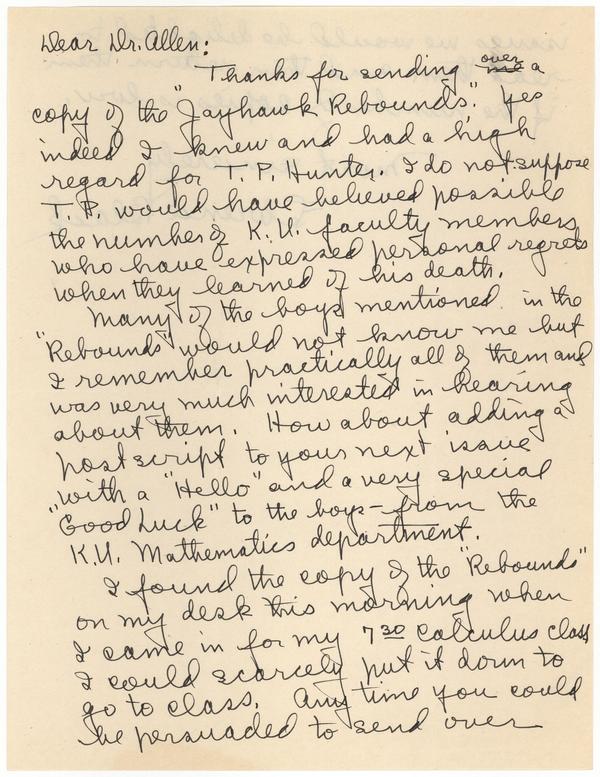 Dear Dr. Allen:
Thanks for sending over a
copy of the "Jayhawk Rebounds". Yes
indeed I knew and had a high
regard for T. P. Hunter. I do not suppose
T. P. would have believed possible
the number of K.U. faculty members
who have expressed personal regrets
when they learned of his death.
Many of the boys mentioned in the
"Rebounds" would not know me but
I remember practically all of them and
was very much interested in hearing
about them. How about adding a
postscript to your next issue
with a "Hello" and a very special
"Good Luck" to the boys - from the
K.U. Mathematics department.
I found the copy of the "Rebounds"
on my desk this morning when
I came in for my 7 30 calculus class
I could scarcely put it down to
go to class. Any time you could
be persuaded to send over